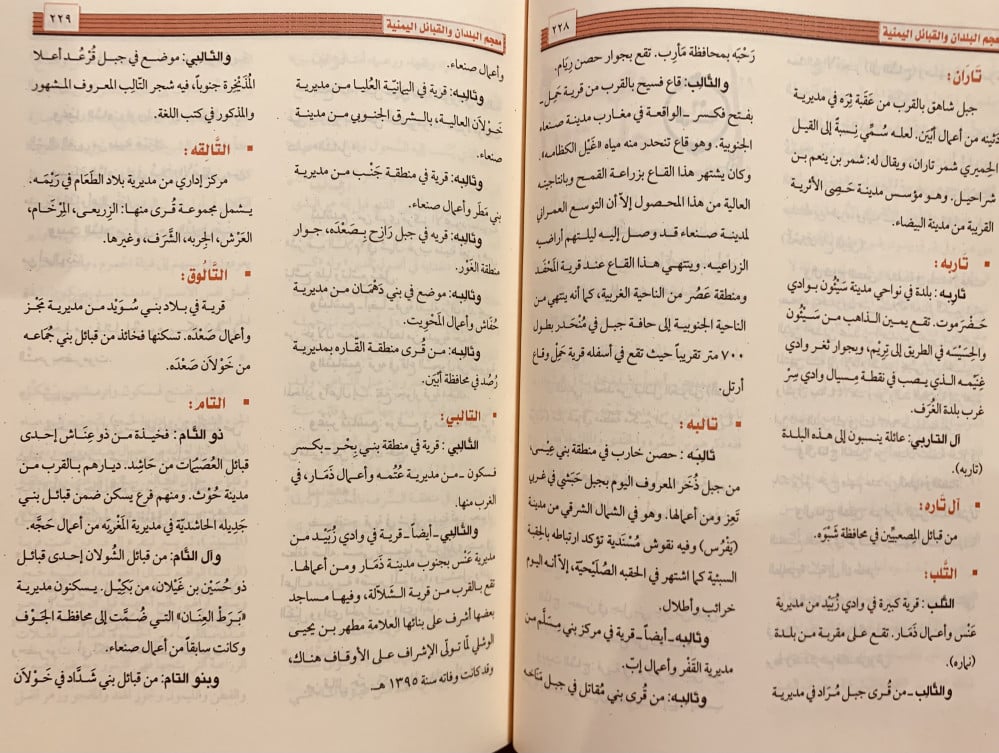 معجم البلدان والقبائل اليمنية
٢٢٨
تَارَان:
جبل شاهق بالقرب من عَقَبة ثِرَه في مديرية
من أعمال أَبْيَن. لعله سُمِّي نِسبةً إلى القيل
الحِميري شمر تاران، ويقال له: شمر بن ينعم بن
شراحيل. وهو مؤسس مدينة حَصِي الأثرية
القريبة من مدينة البيضاء.
تَارِبه:
تَارِبه: بلدة في نواحي مدينة سَيْئُون بوادي
حَضْرَموت. تقع يمين الذاهب من سَيْئُون
في الطريق إلى تِرِيْم، وبجوار ثغر وادي
الذي يصب في نقطة مسيال وادي سِرْ
غرب بلدة الغُرَف.
آل التاربي: عائلة ينسبون إلى هذه البلدة
(تاربه).
آل تَاره:
من قبائل المصعبيين في محافظة شَبْوَه.
التَّلب:
التَّلب: قرية كبيرة في وادي زُبَيْد من مديرية
عَنْس وأعمال ذَمَار. تقع على مقربة من بلدة
(نماره).
والتَّالب ـ من قُرى جبل مُرَاد في مديرية
رَحْبَه بمحافظة مَأرِب. تقع بجوار حصن رِيَام.
والتَّالب: قاع فسيح بالقرب من قرية حَمِل ـ
بفتح فكسر ـ الواقعة في مغارب مدينة صنعاء
الجنوبية. وهو قاع تنحدر منه مياه «غَيْل الكظامه».
وكان يشتهر هذا القاع بزراعة القمح وبانتاجيته
العالية من هذا المحصول إلاّ أن التوسع العمراني
لمدينة صنعاء قد وصل إليه ليلتهم أراضيه
الزراعيه. وينتهي هذا القاع عند قرية المَحْفَد
ومنطقة عَصُر من الناحية الغربية، كما أنه ينتهي من
الناحية الجنوبية إلى حافة جبل في مُنْحَدر بطول
٧٠٠ متر تقريباً حيث تقع في أسفله قرية حَمِل وقاع
أرتل.
تَالبه:
تَالبه: حصن خارب في منطقة بني عِيْسى،
من جبل ذُخَر المعروف اليوم بجبل حَبَشي في غربي
تَعِز ومن أعمالها. وهو في الشمال الشرقي من مدينة
(يَفْرُس) وفيه نقوش مُسْنَدية تؤكد ارتباطه بالحِقبة
السبئية كما اشتهر في الحقبه الصُلَيْحيّة، إلاّ أنه اليوم
خرائب وأطلال.
وتَالبه ـ أيضاً ـ قرية في مركز بني مِسَلَّم من
مديرية القَفْر وأعمال إبّ.
وتَالبه: من قُرى بني مُقاتل في جبل مَنَاخه
معجم البلدان والقبائل اليمنية
٢٢٩
وأعمال صنعاء.
وتالبه: قرية في اليمانيّة العُليا من مديرية
خَوْلاَن العالية، بالشرق الجنوبي من مدينة
صنعاء.
وتَالبه: قرية في منطقة جَنْب من مديرية
بني مَطَر وأعمال صنعاء.
وتَالبه: قريه في جبل رَازِح بصَعْدَه، جوار
منطقة الغَوْر.
وتَالبه: موضع في بني دَهْمَان من مديرية
حُفَاش وأعمال المَحْوِيت.
وتَالبه: من قُرى منطقة القَاره بمديرية
رُصُد في محافظة أَبْيَن.
التالبي:
التَّالبي: قرية في منطقة بني بِحْر ـ بكسر
فسكون ـ من مديرية عُتُمه وأعمال ذَمَار، في
الغرب منها.
والتَّالبي ـ أيضاً ـ قرية في وادي زُبَيْد من
مديرية عَنْس بجنوب مدينة ذَمَار ومن أعمالها.
تقع بالقرب من قرية السُلاَلَة، وفيها مساجد
بعضها أشرف على بنائها العلامة مطهر بن يحيى
الوشلي لمّا تولّى الإشراف على الأوقاف هناك،
وقد كانت وفاته سنة ١٣٩٥ هـ.
والتَّالبي: موضع في جبل قُرْعُد أعلا
المُذَيْخِرة جنوباً، فيه شجر التّالِب المعروف المشهور
والمذكور في كتب اللغة.
التَّالِقه:
مركز إداري من مديرية بلاد الطَعَام في رَيْمَه.
يشمل مجموعة قُرى منها: الزريعي، المِرْخَام،
العَرْش، الجِربه، الشَّرَف، وغيرها.
التَّالُوق:
قرية في بلاد بني سُوَيْد من مديرية مَجْز
وأعمال صَعْدَه. تسكنها فخائذ من قبائل بني جُمَاعه
من خَوْلاَن صَعْدَه.
التام:
ذو التَام: فخيذة من ذو عِنَاش إحدى
قبائل العُصَيْمات من حَاشِد. ديارهم بالقرب من
مدينة حُوْث. ومنهم فرع يسكن ضمن قبائل بني
جَدِيله الحاشديّة في مديرية المَغْرَبه من أعمال حَجَّه.
وآل التَام: من قبائل الشُولان إحدى قبائل
ذو حُسَيْن بن غَيْلان، من بَكِيْل. يسكنون مديرية
«بَرَطْ العِنَان» التي ضُمَّت إلى محافظة الجَوْف
وكانت سابقاً من أعمال صنعاء.
وبنو التام: من قبائل بني شَدَّاد في خَوْلاَن